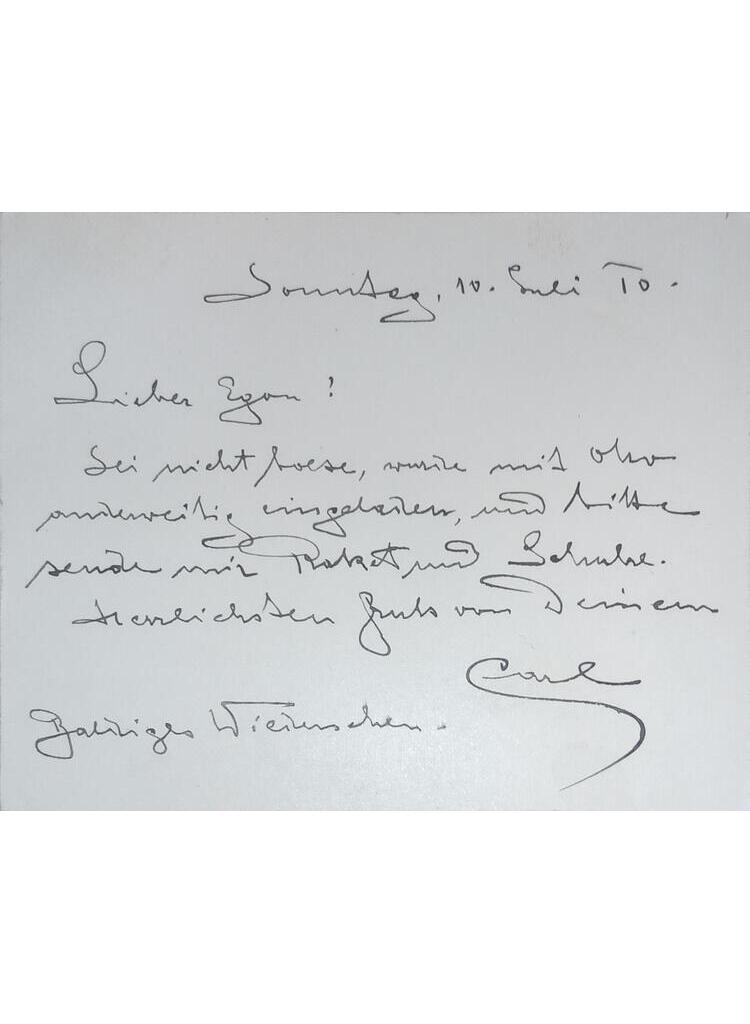 Sonntag, 10. Juli 10.
Lieber Egon!
Sei nicht boese, wurde mit Otto
anderweitig eingeladen, und bitte
sende mir Raket und Schuhe.
Herzlichsten Gruß von Deinem
Carl
Baldiges Wiedersehen.